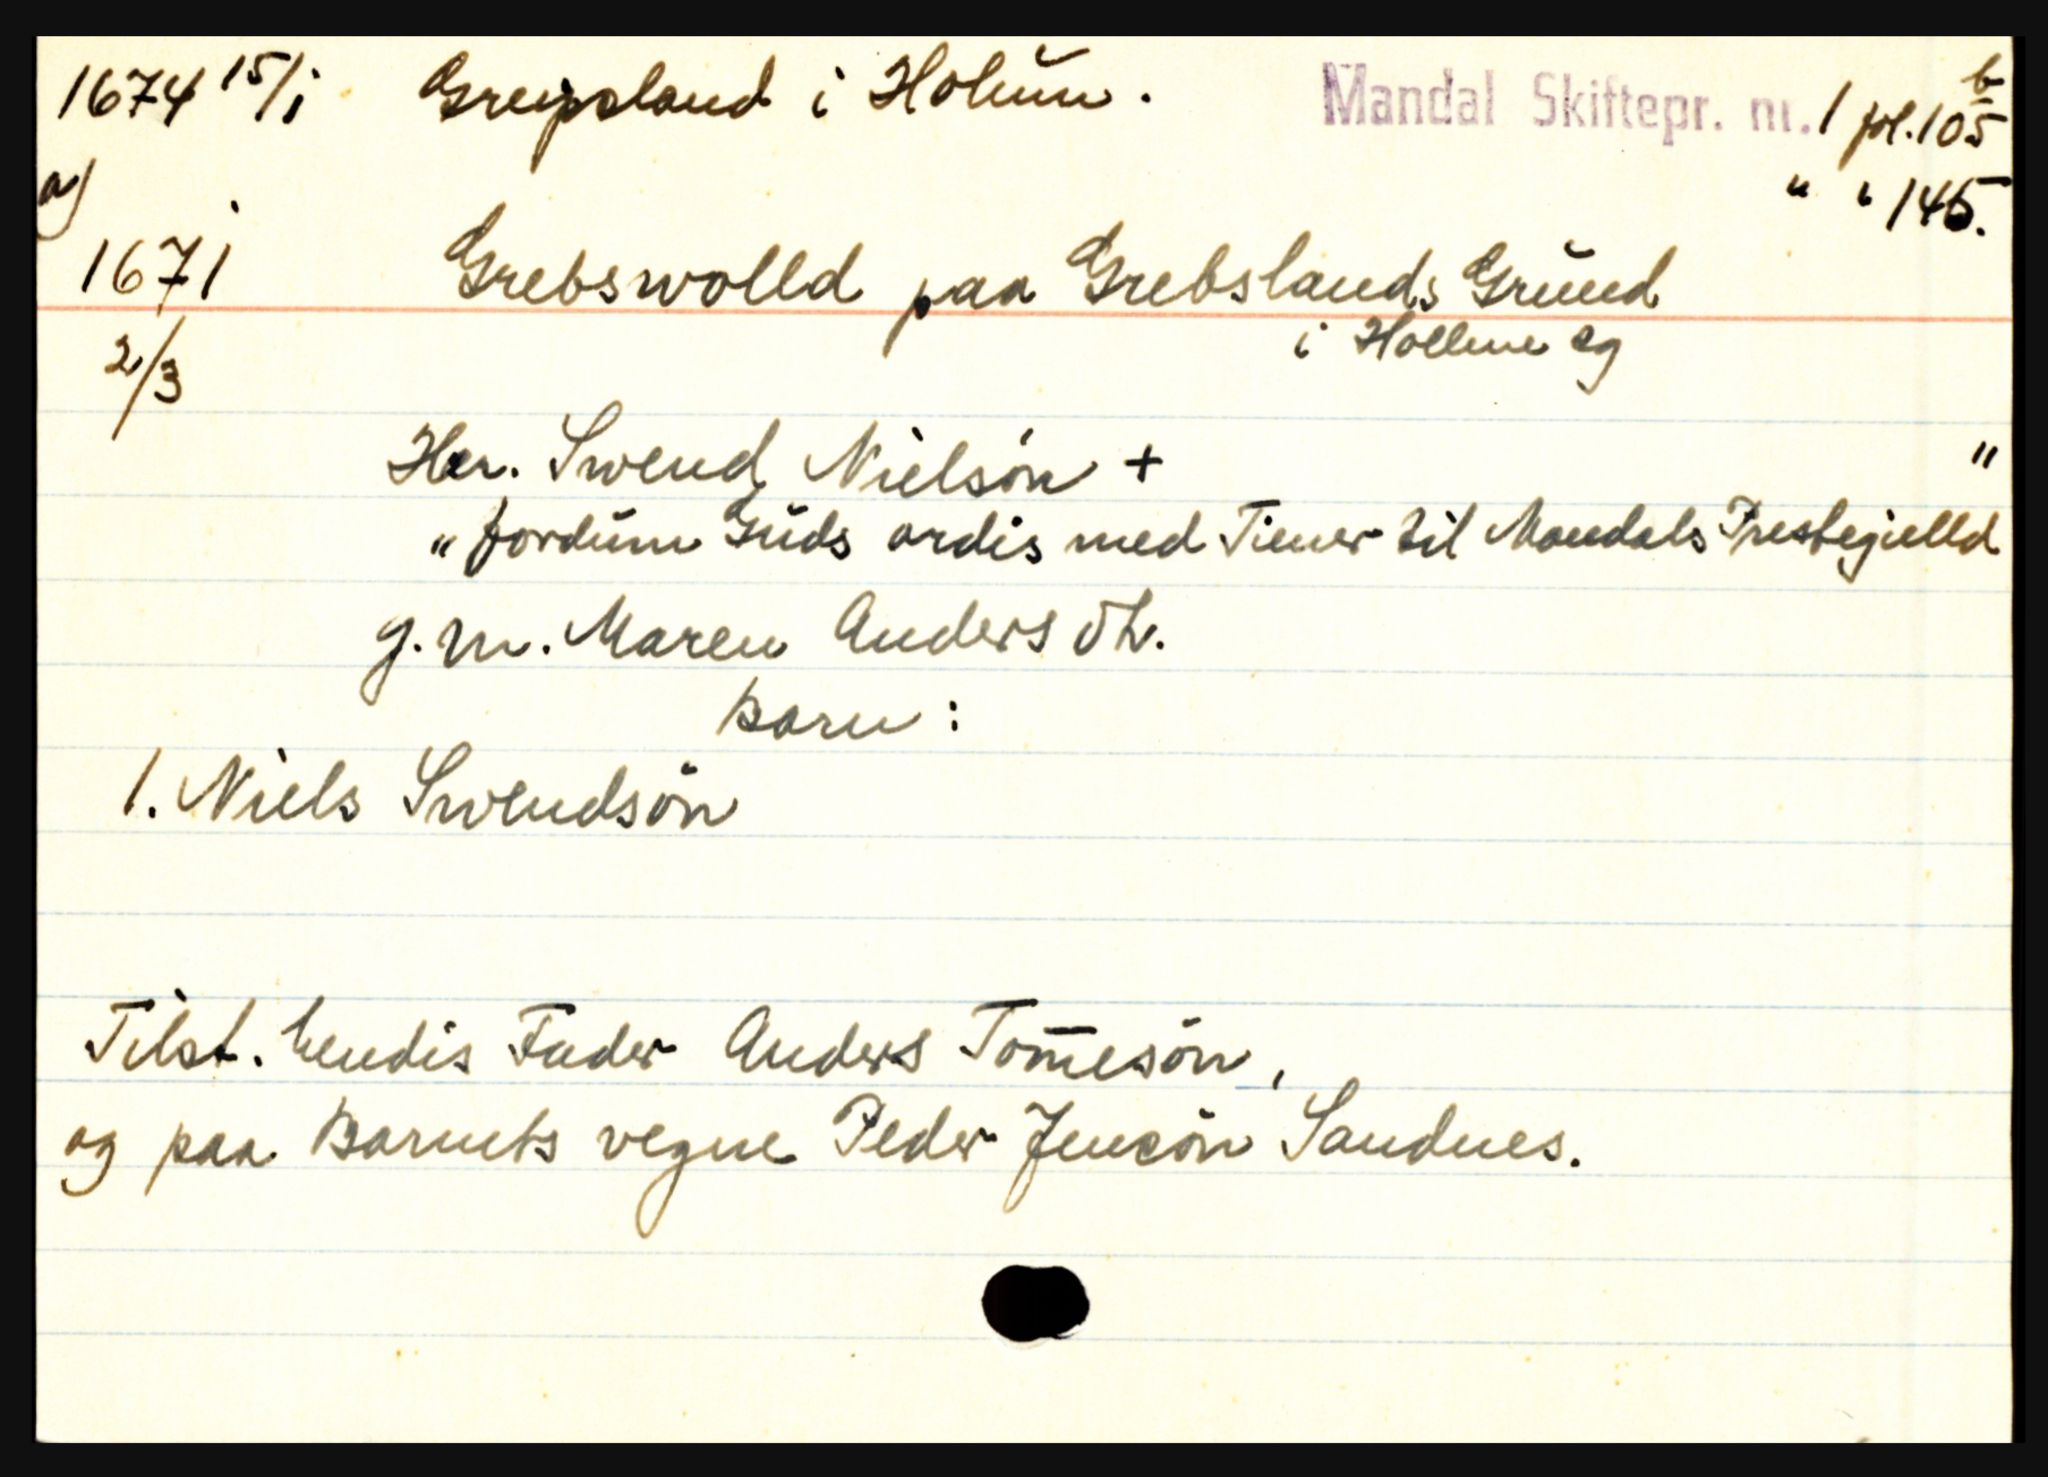 1674 15/1 Greipsland i Holum. Mandal Skiftepr. nr. 1 fol. 105 b
a) " " 145.
1671 Grebswolld paa Grebslands Grund
2/3 i Hollume Sg
Her. Swend Nielsøn + "
„ fordum Guds ordis med Tiener til Mandals Prestegielld
g. m. Maren Anders dtr.
Barn :
1. Niels Swendsøn
Tilst. hendis Fader Anders Tom̅esøn,
og paa Barnets vegne Peder Jensøn Sandnes.